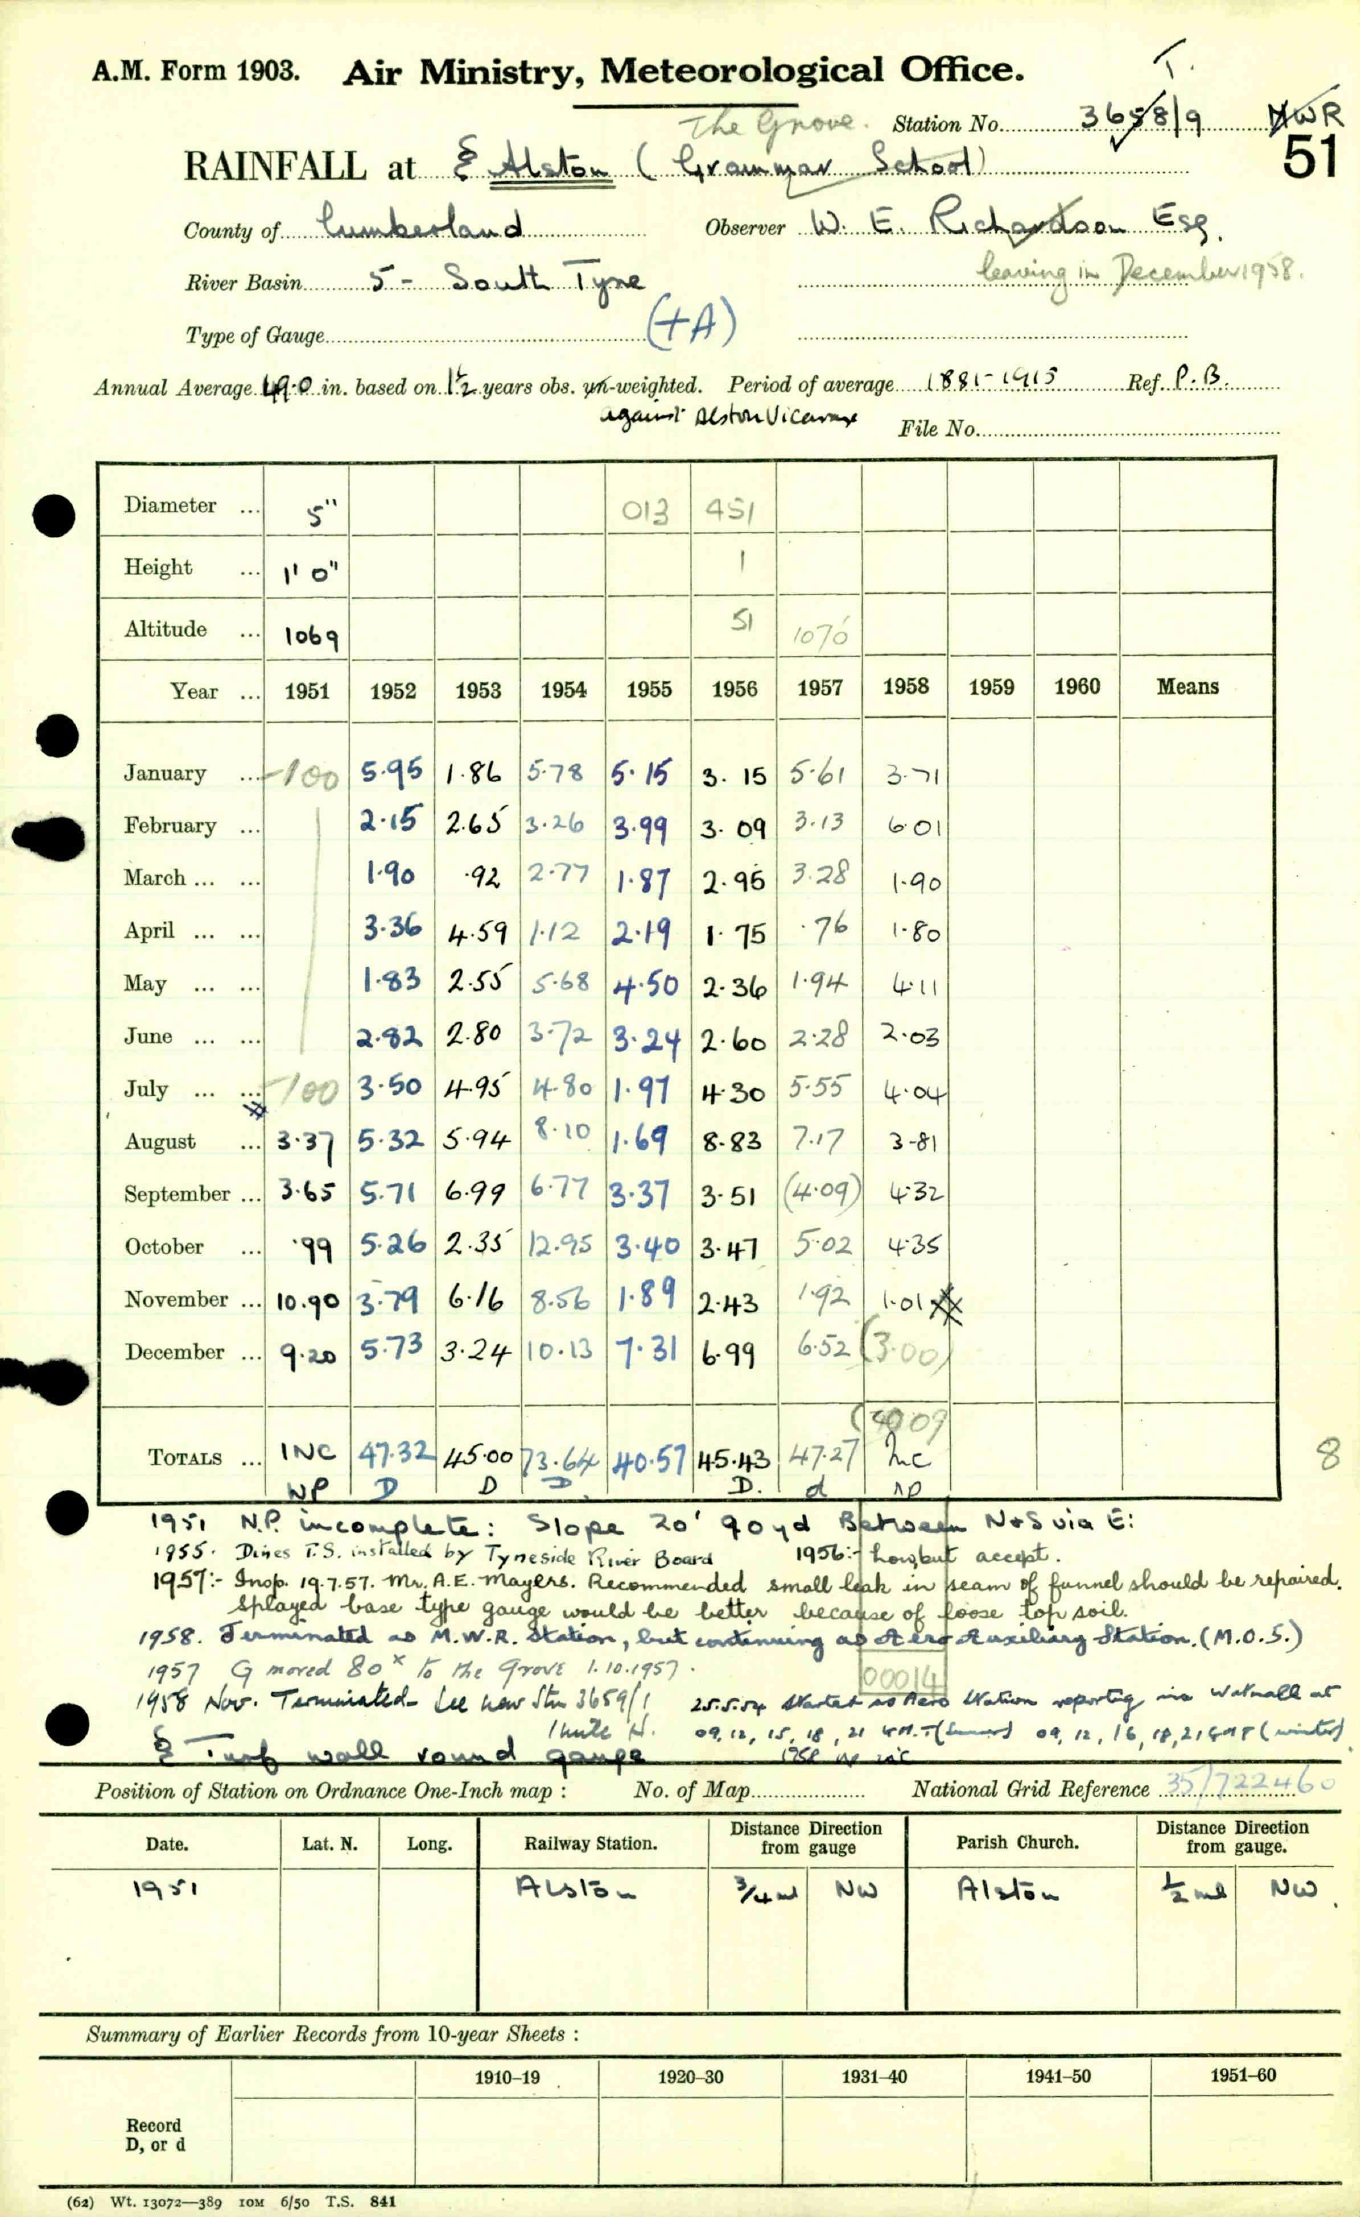 T.
A.M. Form 1903. Air Ministry, Meteorological Office.
The Grove. Station No. 3658/9 MWR
51
RAINFALL at § Alston (Grammar School)
County of Cumberland Observer W. E. Richardson Esq.
River Basin 5 - South Tyne leaving in December 1958.
Type of Gauge (+A)
Annual Average 49.0 in. based on 1½ years obs. un-weighted. Period of average 1881-1915 Ref. P.B.
against Alston Vicarage File No.
Diameter ... 5" 013 451
Height ... 1' 0" 1
Altitude ... 1069 51 1070
Year ... 1951 1952 1953 1954 1955 1956 1957 1958 1959 1960 Means
January ... -100 5.95 1.86 5.78 5.15 3.15 5.61 3.71
February ... 2.15 2.65 3.26 3.99 3.09 3.13 6.01
March ... ... 1.90 .92 2.77 1.87 2.95 3.28 1.90
April ... ... 3.36 4.59 1.12 2.19 1.75 .76 1.80
May ... ... 1.83 2.55 5.68 4.50 2.36 1.94 4.11
June ... ... 2.82 2.80 3.72 3.24 2.60 2.28 2.03
July ... ... -100 3.50 4.95 4.80 1.97 4.30 5.55 4.04
August ... 3.37 5.32 5.94 8.10 1.69 8.83 7.17 3.81
September ... 3.65 5.71 6.99 6.77 3.37 3.51 (4.09) 4.32
October ... .99 5.26 2.35 12.95 3.40 3.47 5.02 4.35
November ... 10.90 3.79 6.16 8.56 1.89 2.43 1.92 1.01
December ... 9.20 5.73 3.24 10.13 7.31 6.99 6.52 (3.00)
TOTALS ... INC 47.32 45.00 73.64 40.57 45.43 47.27 Inc 8
NP D D D. D. d NP
1951 N.P. incomplete: Slope 20' 90yd Between N+S via E:
1955. Dines T.S. installed by Tyneside River Board 1956:- low, but accept.
1957:- Insp. 19.7.57. Mr. A.E. Mayers. Recommended small leak in seam of funnel should be repaired.
Splayed base type gauge would be better because of loose top soil.
1958. Terminated as M.W.R. Station, but continuing as Aero Auxiliary Station. (M.O.5.)
1957 G moved 80x to the Grove 1.10.1957.
00014
1958 Nov. Terminated- See new Stn 3659/1
25.5.54 Started as Aero Station reporting in at
09, 12, 15, 18, 21 G.M.T (Summer) 09, 12, 16, 18, 21 GMT (winter)
§ Turf wall round gauge
Position of Station on Ordnance One-Inch map : No. of Map National Grid Reference 35/722460
Date. Lat. N. Long. Railway Station. Distance from gauge Direction Parish Church. Distance from gauge. Direction
1951 Alston ¾ ml NW Alston ½ ml NW.
Summary of Earlier Records from 10-year Sheets :
1910–19 1920–30 1931–40 1941–50 1951–60
Record
D, or d
(62) Wt. 13072—389 10M 6/50 T.S. 841